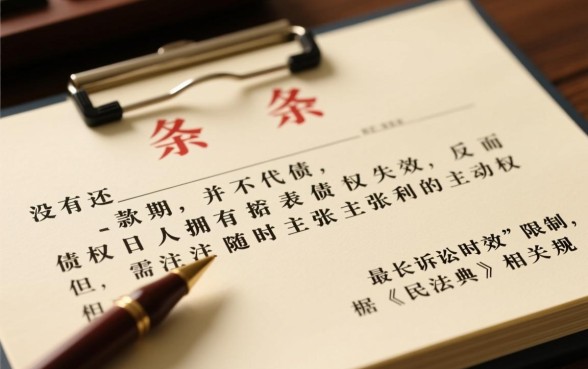 条 条
没有还
-款期，并不代债，
债权日人拥有搭表债权失效，反面
但，需注注随时主张主张利的主动权
但
最长诉讼时效”限制，
据《民法典》相关规